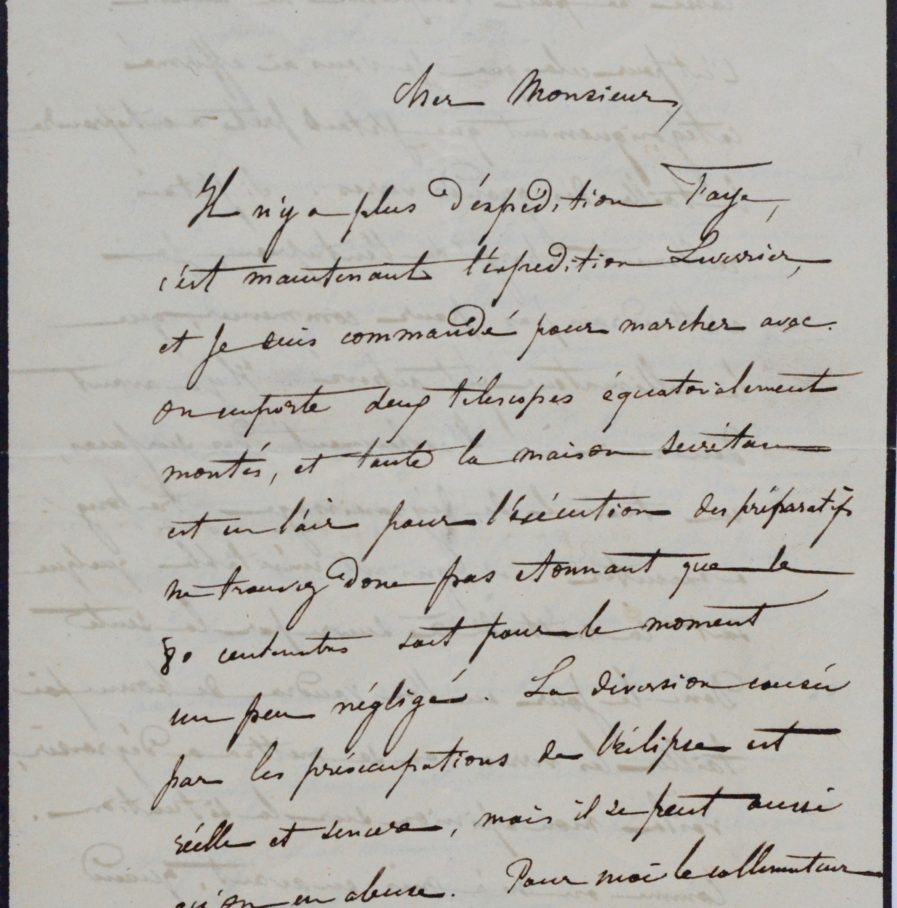 cher Monsieur,
Il n'y a plus d'éxpédition Faye,
c'est maintenant l'éxpedition Leverrier,
et Je suis commandé pour marcher avec.
on emporte deux télescopes équatorialement
montés, et toute la maison secrétan
est en l'air pour l'éxécution des préparatifs
ne trouvez donc pas étonnant que le
80 centimetres soit pour le moment
un peu négligé. La diversion causée
par les préocupations de l'éclipse est
réelle et sincere, mais il se peut aussi
qu'on en abuse. Pour moi le collimateur